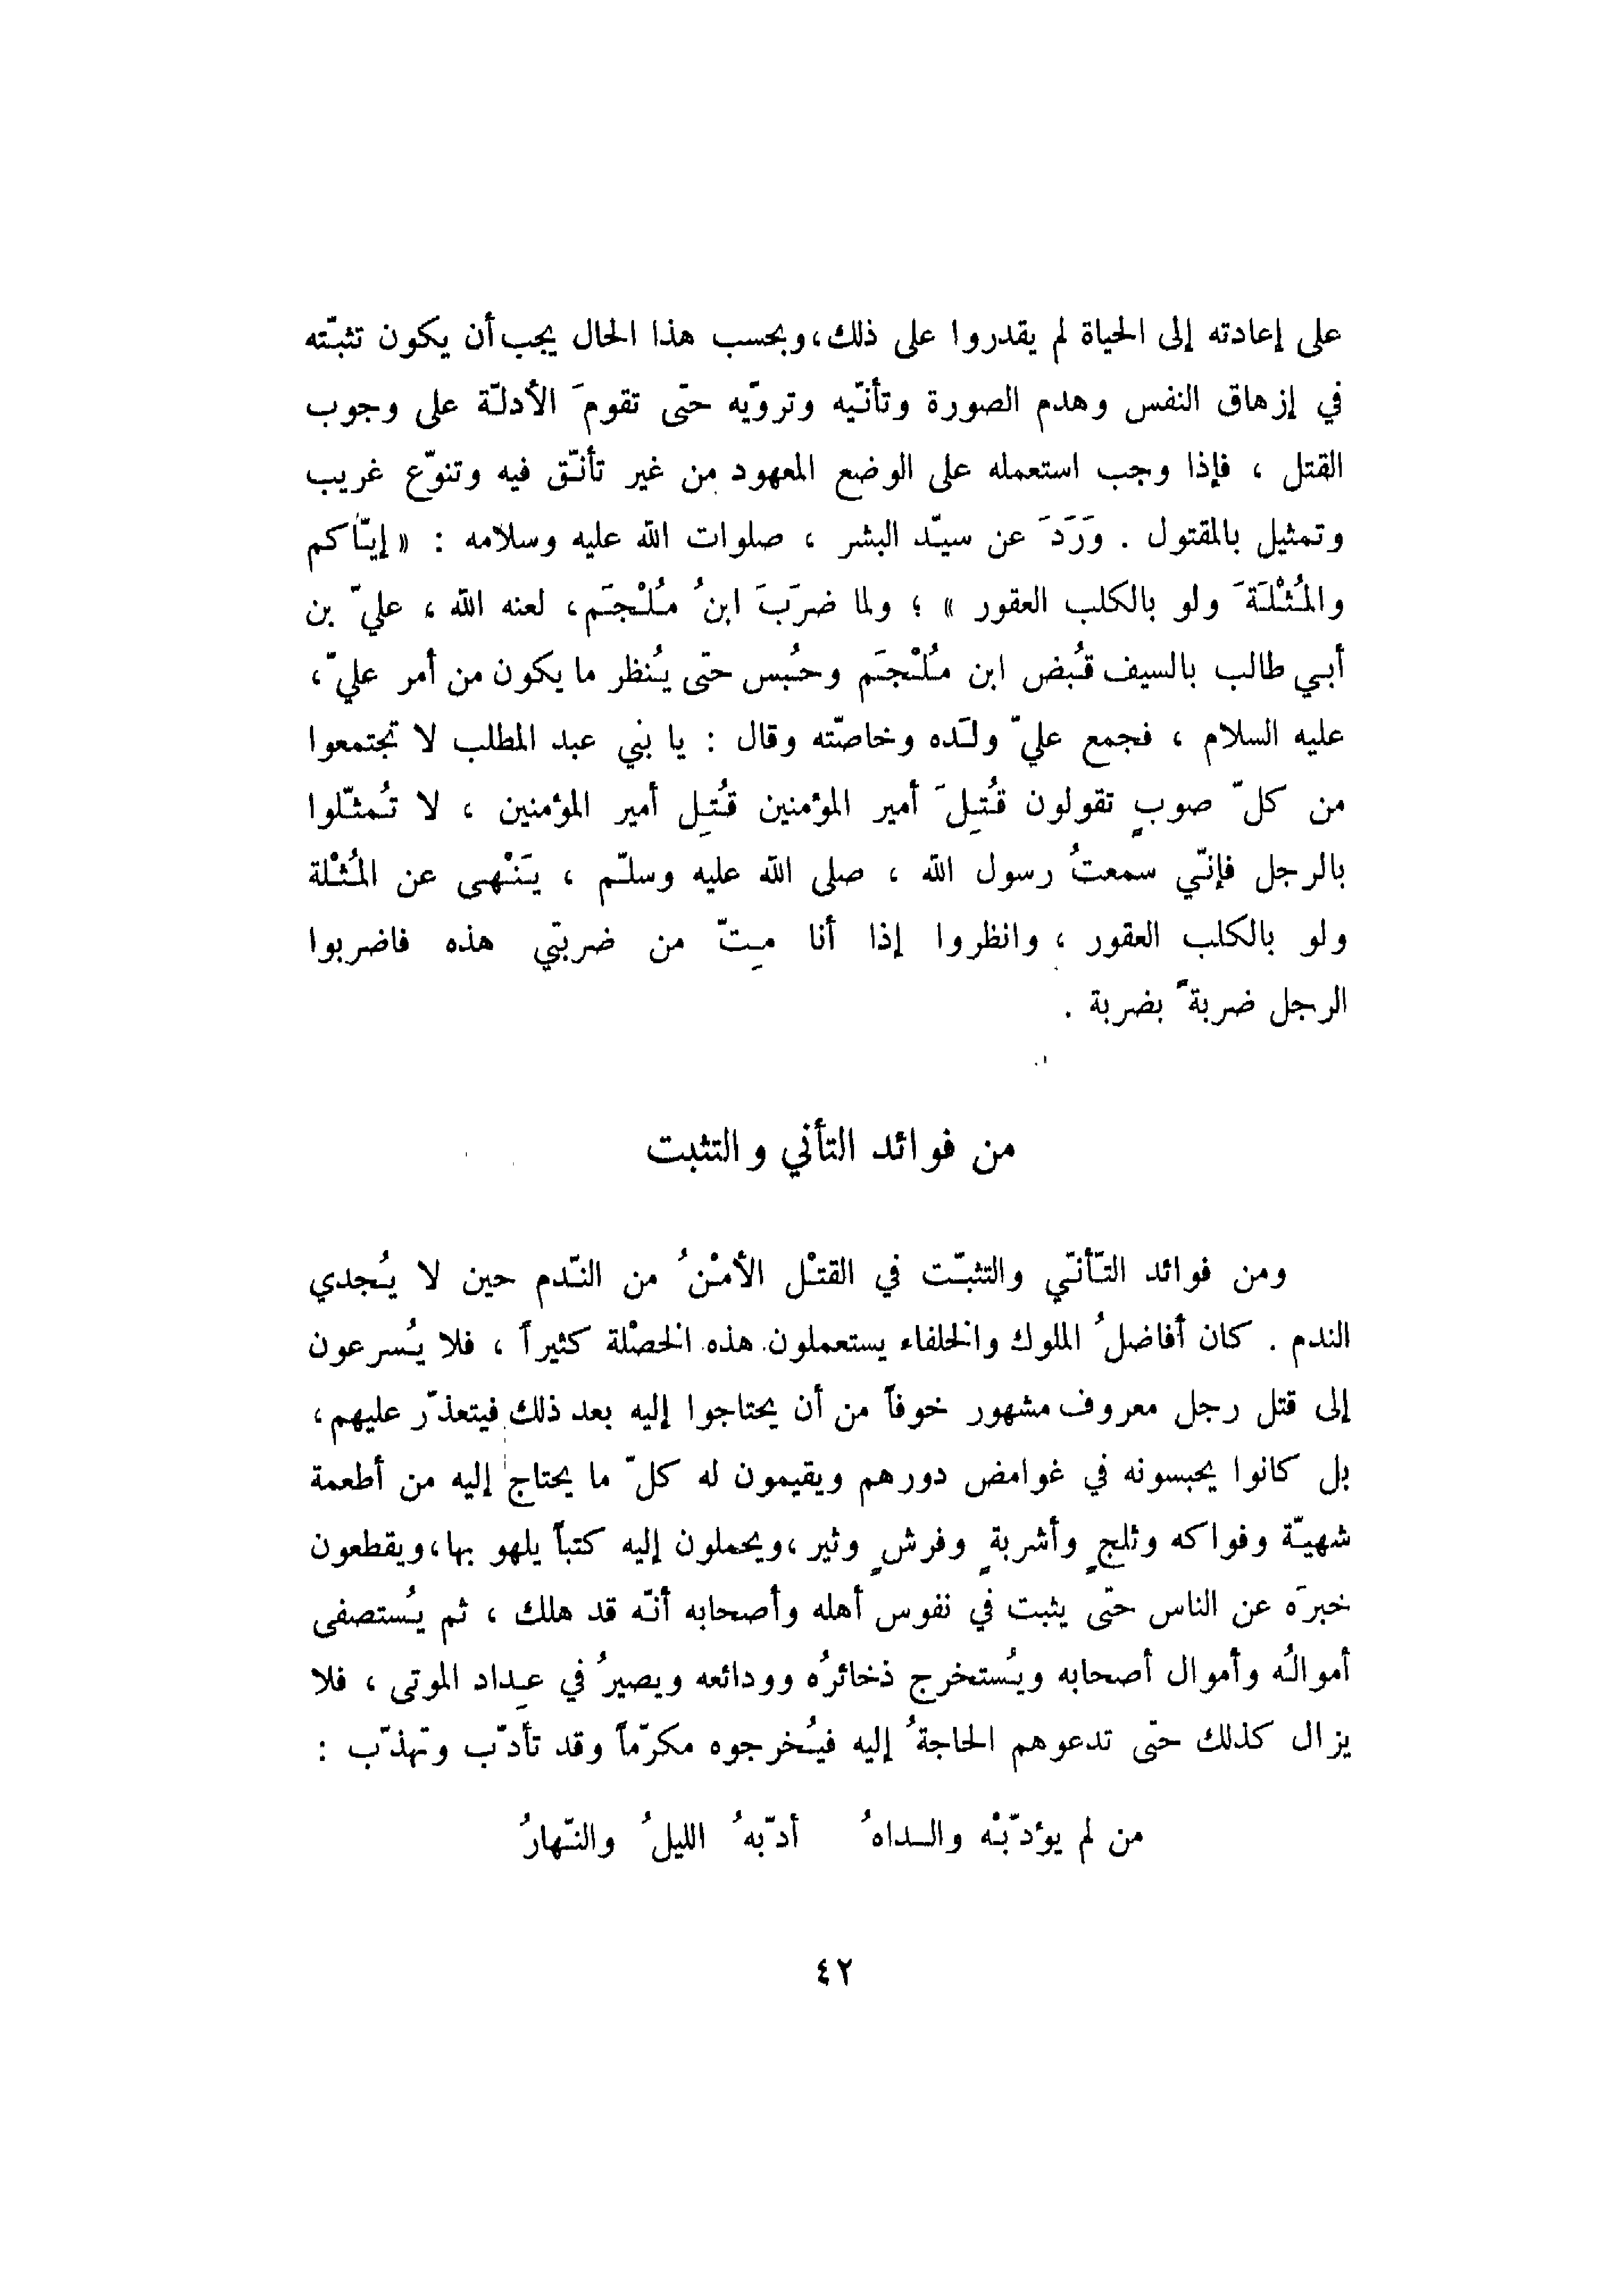 على إعادته إلى الحياة لم يقدروا على ذلك،وبحسب هذا الحال يجب أن يكون تثبّته
في إزهاق النفس وهدم الصورة وتأنّيه وتروّيه حتّى تقومَ الأدلّة على وجوب
القتل ، فإذا وجب استعمله على الوضع المعهود من غير تأنّق فيه وتنوّع غريب
وتمثيل بالمقتول . وَرَدَ عن سيّد البشر ، صلوات الله عليه وسلامه : « إيّاكم
والمُثْلَةَ ولو بالكلب العقور » ؛ ولما ضرَبَ ابنُ مُلْجَم، لعنه الله ، عليّ بن
أبي طالب بالسيف قُبض ابن مُلْجَم وحُبس حتّى يُنظر ما يكون من أمر عليّ،
عليه السلام ، فجمع عليّ ولَده وخاصّته وقال : يا بني عبد المطلب لا تجتمعوا
من كلّ صوبٍ تقولون قُتِلَ أمير المؤمنين قُتِل أمير المؤمنين ، لا تُمثّلوا
بالرجل فإنّي سمعتُ رسول الله ، صلى الله عليه وسلّم ، يَنْهى عن المُثْلة
ولو بالكلب العقور ، وانظروا إذا أنا مِتّ من ضربتي هذه فاضربوا
الرجل ضربةً بضربة .
من فوائد التأني والتثبت
ومن فوائد التّأنّي والتثبّت في القتْل الأمْنُ من النّدم حين لا يُجدي
الندم . كان أفاضلُ الملوك والخلفاء يستعملون هذه الخصْلة كثيراً ، فلا يُسرعون
إلى قتل رجل معروف مشهور خوفاً من أن يحتاجوا إليه بعد ذلك فيتعذّر عليهم،
بل كانوا يحبسونه في غوامض دورهم ويقيمون له كلّ ما يحتاج إليه من أطعمة
شهيّة وفواكه وثلجٍ وأشربةٍ وفرشٍ وثير ،ويحملون إليه كتباً يلهو بها،ويقطعون
خبرَه عن الناس حتّى يثبت في نفوس أهله وأصحابه أنّه قد هلك ، ثم يُستصفى
أموالُه وأموال أصحابه ويُستخرج ذخائرُه وودائعه ويصيرُ في عِداد الموتى ، فلا
يزال كذلك حتّى تدعوهم الحاجةُ إليه فيُخرجوه مكرّماً وقد تأدّب وتهذّب :
من لم يؤدّبْه والداهُ أدّبهُ الليلُ والنّهارُ
٤٢